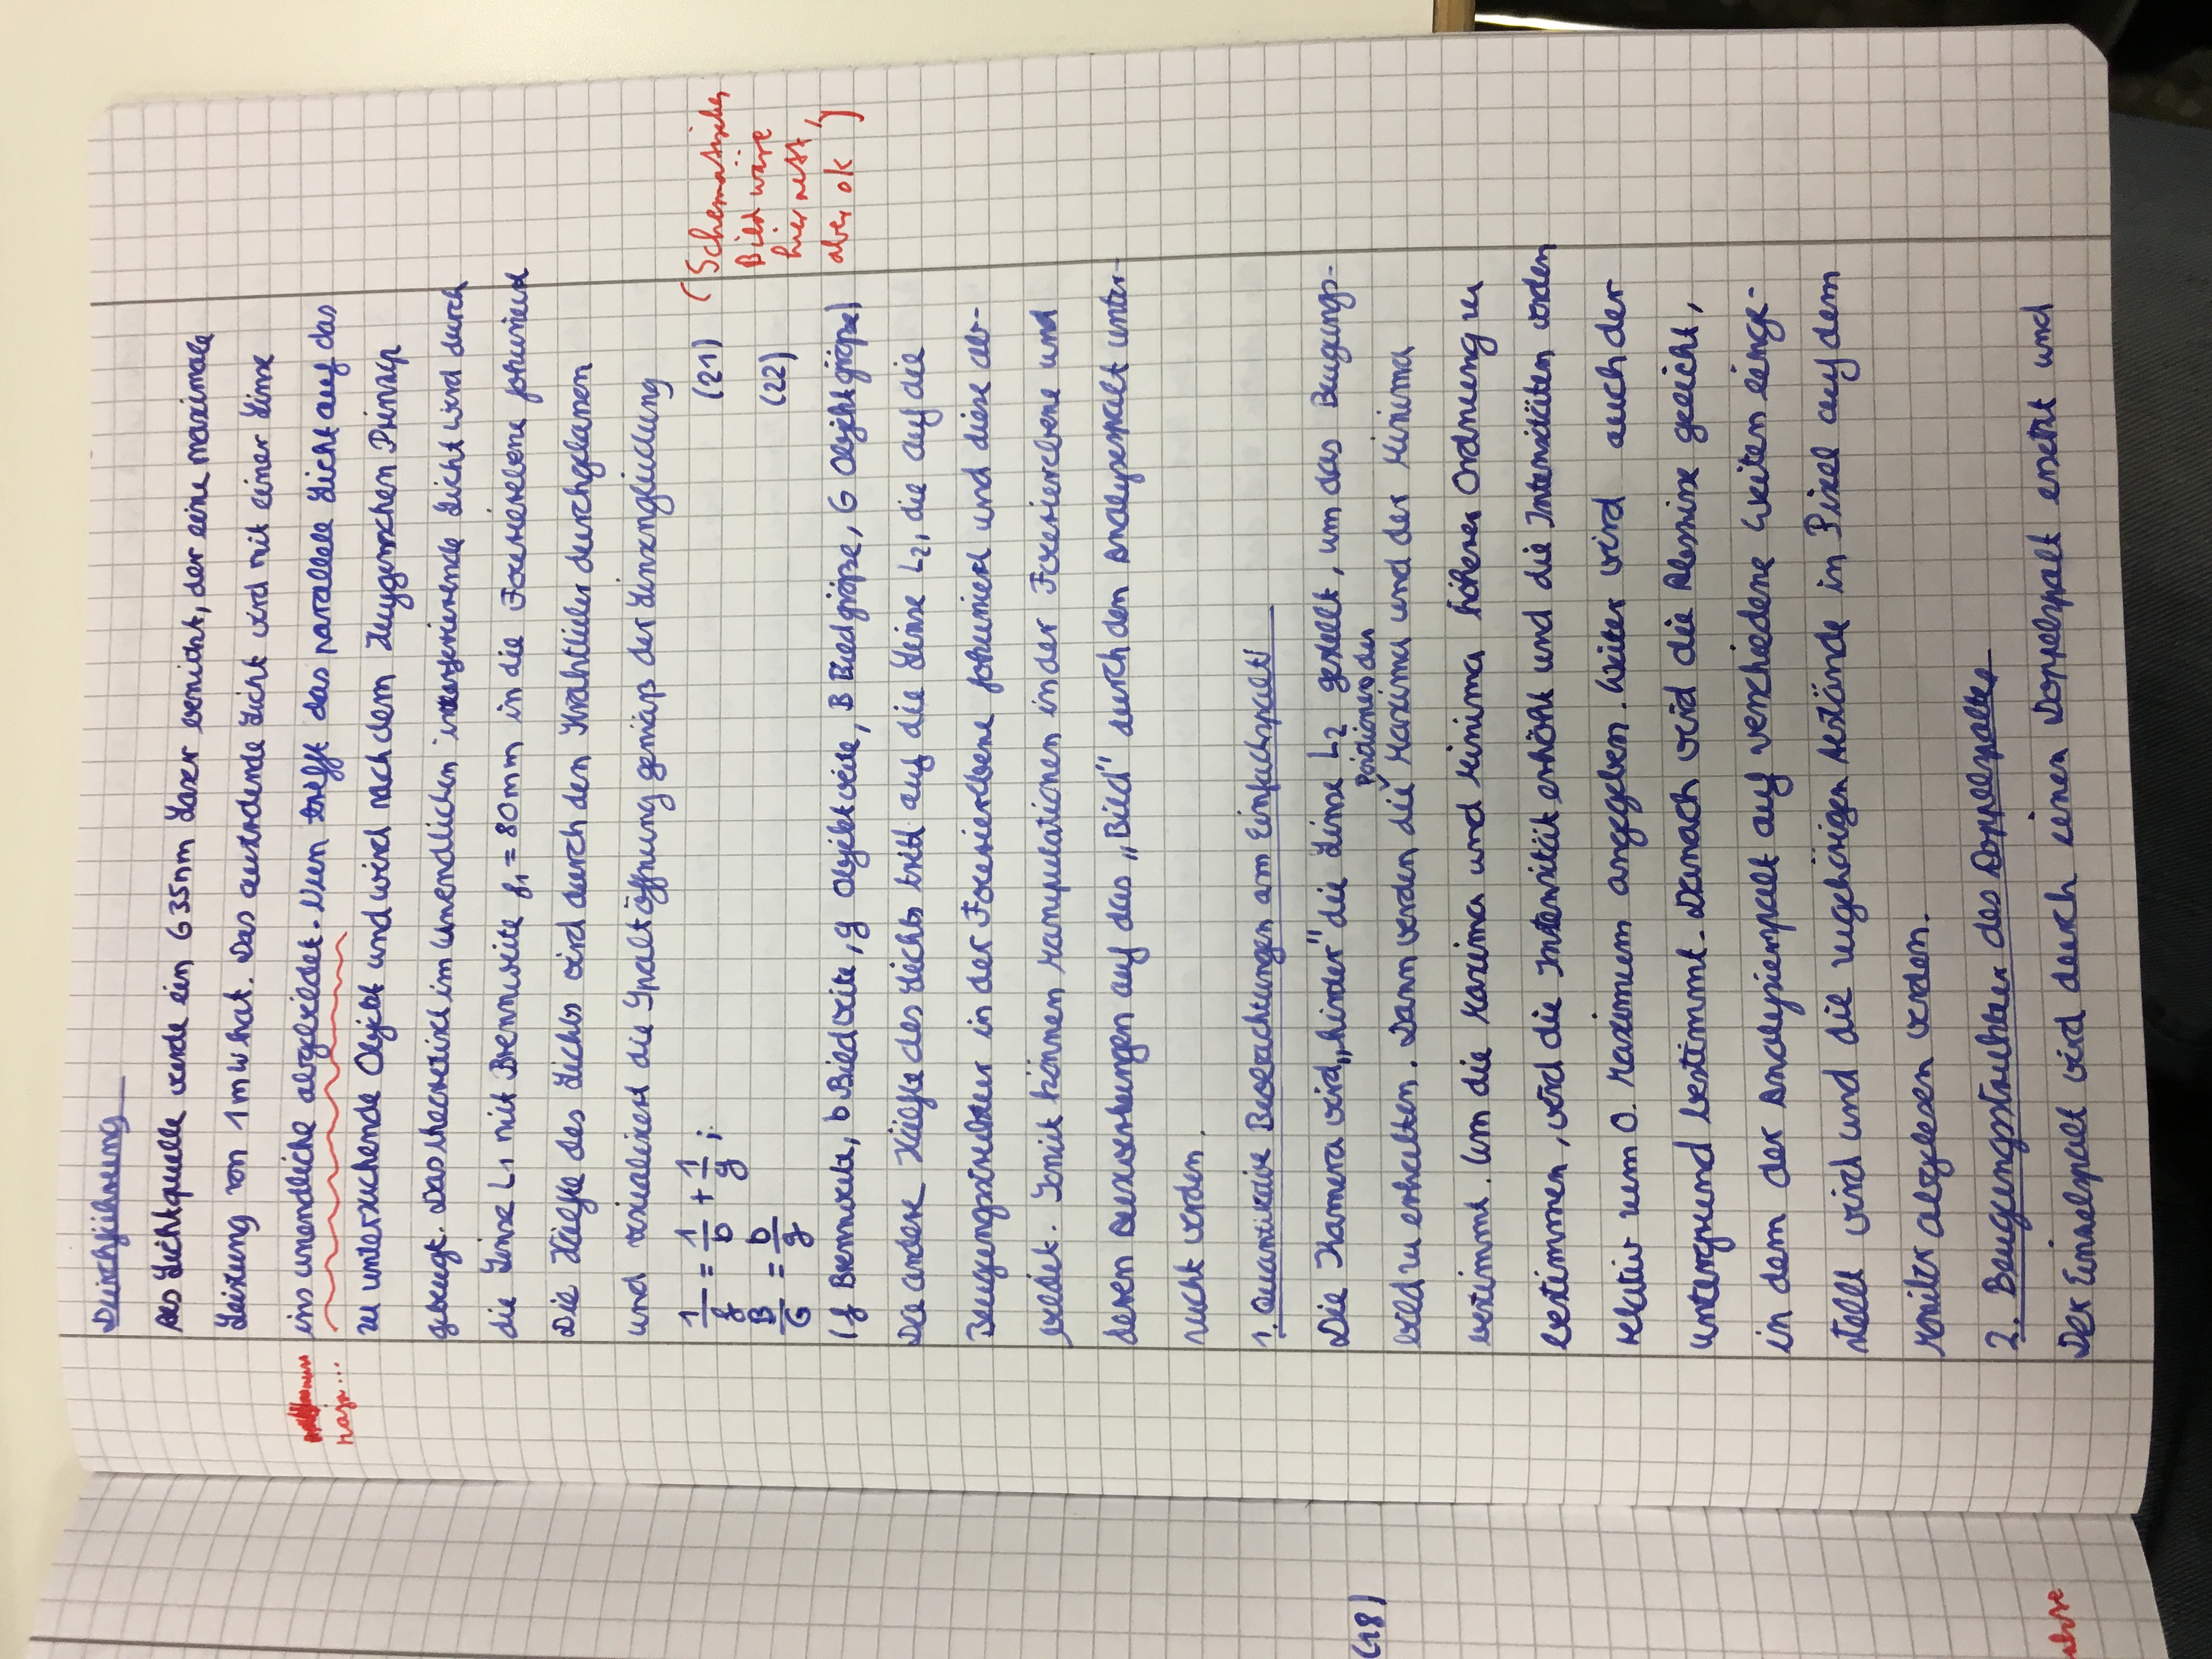 Durchführung
Als Lichtquelle wurde ein 635nm Laser benutzt, der eine maximale
Leistung von 1mW hat. Das austretende Licht wird mit einer Linse
ins unendliche abgebildet. Nun trifft das parallele Licht auf das
naja...
zu untersuchende Objekt und wird nach dem Huygensschen Prinzip
gebeugt. Das theoretisch im unendlichen interferierende Licht wird durch
die Linse L1 mit Brennweite f1 = 80mm in die Fourierebene fokussiert
Die Hälfte des Lichts wird durch den Strahlteiler durchgelassen
und visualisiert die Spaltöffnung gemäß der Linsengleichung
1/f = 1/b + 1/g ; (21)
B/G = b/g (22)
(Schematisches
Bild wäre
hier nett,
aber ok)
(f Brennweite, b Bildweite, g Objektweite, B Bildgröße, G Objektgröße)
Die andere Hälfte des Lichts tritt auf die Linse L2, die auf die
Beugungsstruktur in der Fourierebene fokussiert und diese ab-
bildet. Somit können Manipulationen in der Fourierebene und
deren Auswirkungen auf das „Bild" durch den Analysespalt unter-
sucht werden.
1. Quantitative Beobachtungen am Einfachspalt
Die Kamera wird „hinter" die Linse L2 gestellt, um das Beugungs-
(18)
bild zu erhalten. Dann werden die Positionen der Maxima und der Minima
bestimmt. Um die Maxima und Minima höherer Ordnung zu
bestimmen, wird die Intensität erhöht und die Intensitäten werden
relativ zum 0. Maximum angegeben. Weiter wird auch der
untergrund bestimmt. Danach wird die Abszisse geeicht,
in dem der Analysierspalt auf verschiedene Weiten einge-
stellt wird und die zugehörigen Abstände in Pixel auf dem
Monitor abgelesen werden.
2. Beugungsstruktur des Doppelspaltes
Der Einzelspalt wird durch einen Doppelspalt ersetzt und